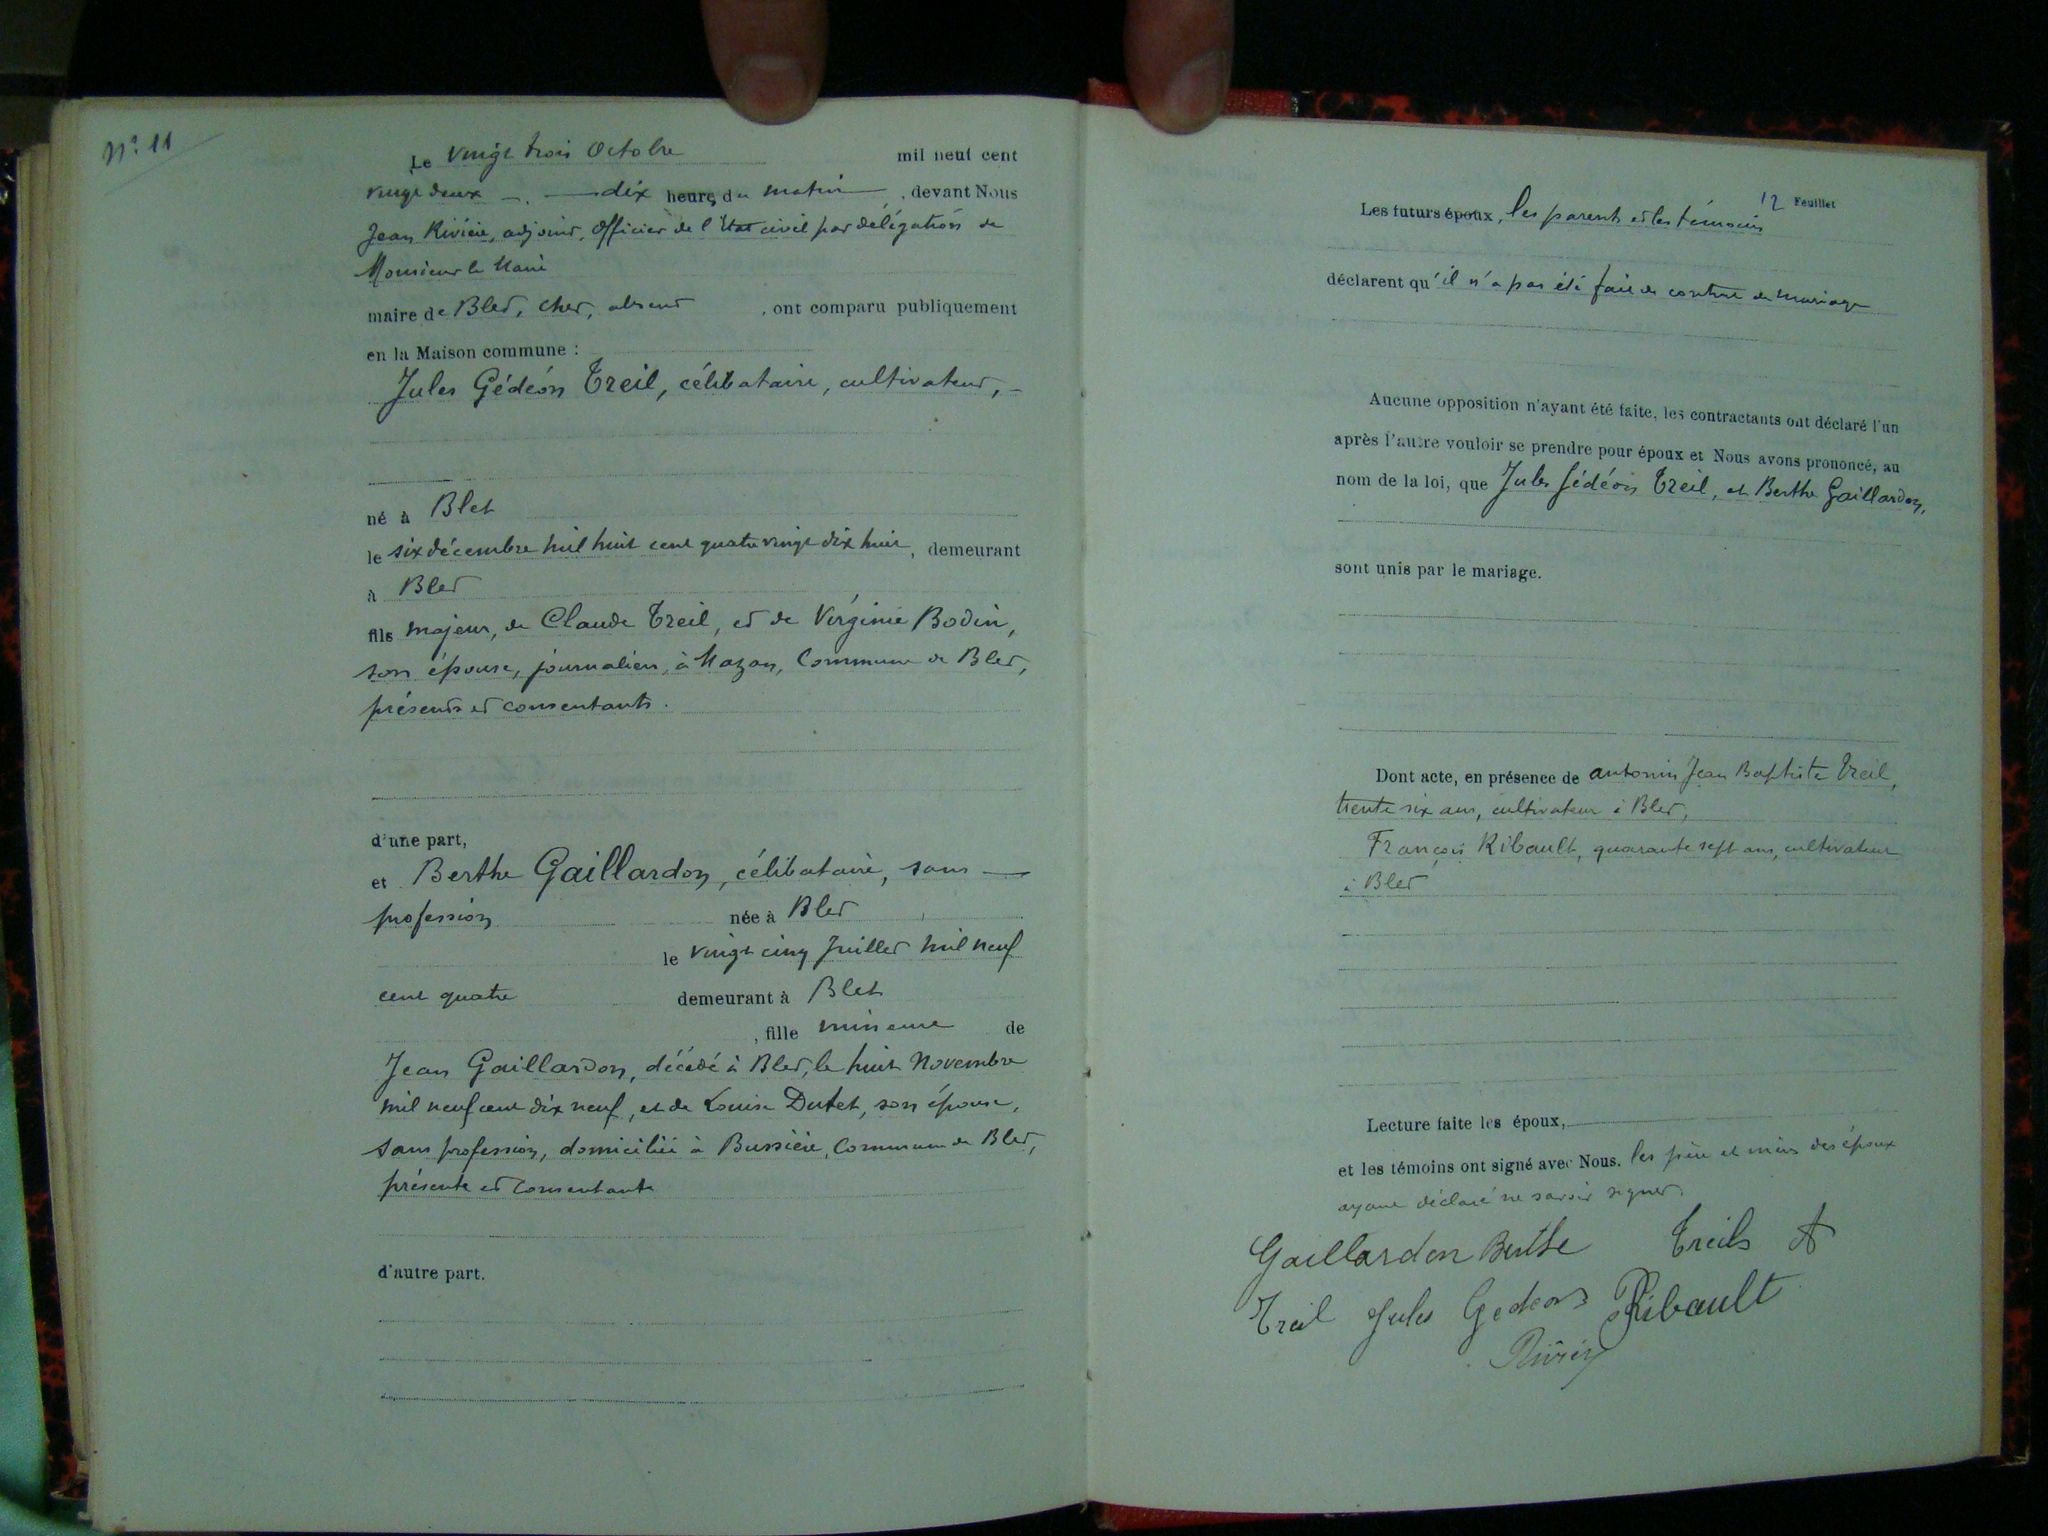 N° 11
Le vingt trois Octobre mil neuf cent
vingt deux — . — dix heures du matin , devant Nous
Jean Rivière, adjoint, Officier de l'Etat civil par délégation de
Monsieur le Maire
maire de Blet, Cher, absent , ont comparu publiquement
en la Maison commune :
Jules Gédéon Treil, célibataire, cultivateur, —
né à Blet
le six décembre mil huit cent quatre vingt dix huit, demeurant
à Blet
fils majeur, de Claude Treil, et de Virginie Bodin,
son épouse, journaliers, à Mazan, Commune de Blet,
présents et consentants.
d'une part,
et Berthe Gaillardon, célibataire, sans —
profession née à Blet
le vingt cinq Juillet mil neuf
cent quatre demeurant à Blet
, fille mineure de
Jean Gaillardon, décédé à Blet, le huit Novembre
mil neuf cent dix neuf, et de Louise Dutet, son épouse,
sans profession, domiciliée à Bussière, Commune de Blet,
présente et consentante
d'autre part.
12 Feuillet
Les futurs époux, les parents et les témoins
déclarent qu'il n'a pas été fait de contrat de mariage
Aucune opposition n'ayant été faite, les contractants ont déclaré l'un
après l'autre vouloir se prendre pour époux et Nous avons prononcé, au
nom de la loi, que Jules Gédéon Treil, et Berthe Gaillardon,
sont unis par le mariage.
Dont acte, en présence de Antonin Jean Baptiste Treil,
trente six ans, cultivateur à Blet,
François Ribault, quarante sept ans, cultivateur
à Blet
Lecture faite les époux,
et les témoins ont signé avec Nous. les père et mères des époux
ayant déclaré ne savoir signer.
Gaillardon Berthe Treils A
Treil Jules Gedeon Ribault
Rivière